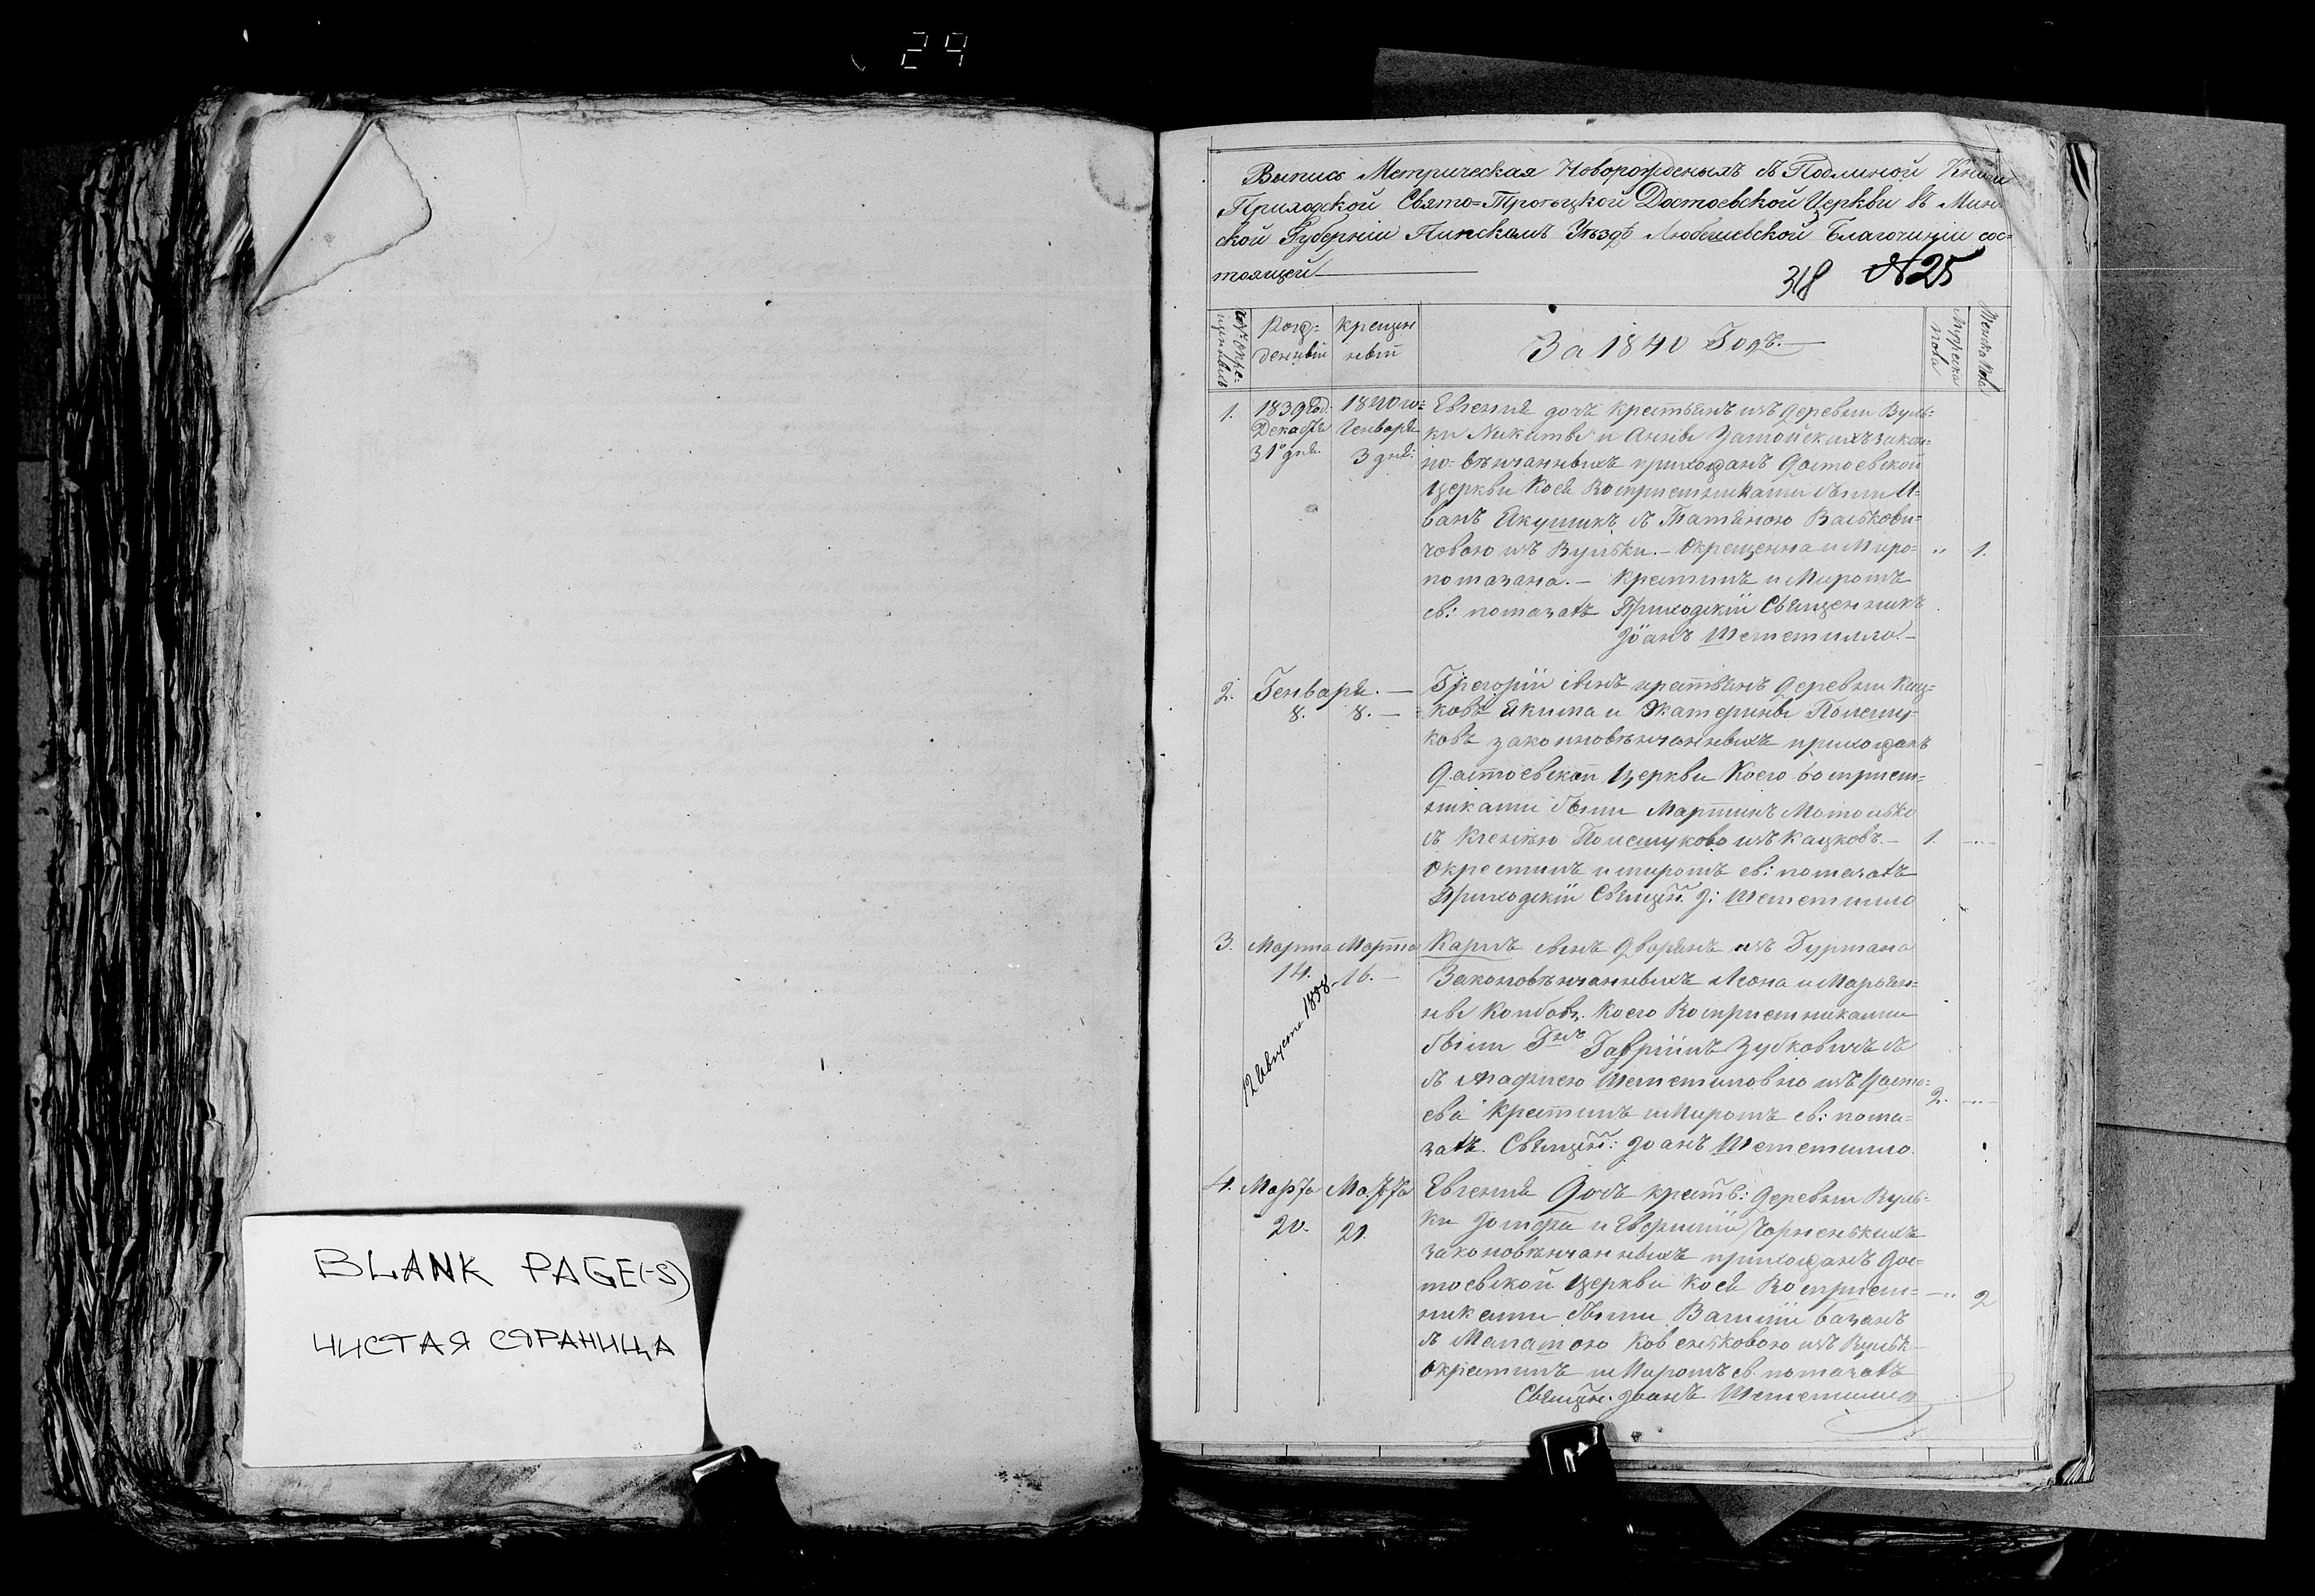 29
BLANK PAGE(-S)
ЧИСТАЯ СТРАНИЦА
Выпись Метрическая Новорожденыхъ съ Подлиной Книги
Приходской Свято=Троъцкой Достоевской Церкви въ Мин=
ской Губерніи Пинскамъ Уъздъ Любешевской Благочиніи сос=
тоящей
318 №25
Рож= Крещен
денный ный
За 1840 Годъ.
Мужеска пола
Женска пола
1. 1839 Год. 1840 го=
Декабря Генваря
31 дня. 3 дня.
Евгенія дочь крестьянъ изъ деревни Вуль=
ки Никиты и Анны закон=
но=вѣнчанныхъ прихожанъ Достоевской
Церкви Коея Воспріемниками были И=
ванъ Якушикъ съ Татяною Васькови=
човою изъ Вульки.– Окрещенна и Миро= " 1.
помазана.– Крестилъ и Миромъ
св: помазалъ Приходскій Священникъ
Іоанъ Шеметилло.–
2. Генваря. —
8. 8. —
Григорій сынъ крестьянъ деревни Кац=
ковъ Якима и Екатерины Полещу=
ковъ законновѣнчанныхъ прихожанъ
Достоевской Церкви Коего воспріем=
никами были Мартинъ Мотолько
съ Полещуково изъ Кацковъ.– 1.
Окрестилъ и миромъ св: помазалъ
Приходскій Священ. І: Шеметилло
3. Марта Марта
14. 16. —
12 Августа 1858.
Карлъ сынъ Дворянъ изъ Гурмана
Законовѣнчанныхъ Леона и Марьян=
ны Коего Воспріемниками
были Гнъ Гавріилъ Зубковичъ съ
съ Шеметиловно изъ Досто=
ева Крестилъ и Миромъ св: пома= 2.
залъ. Священ: Іоанъ Шеметилло.
4. Марта Марта
20. 21.
Евгенія Дочь крестъ: Деревни Вуль=
ки и Евфиміи Чорненькихъ
законовѣнчанныхъ прихожанъ Дос=
тоевской Церкви Коея Воспріем= 2
никами были Василій Базанъ
съ Маланою изъ Вульк
Окрестилъ и Миромъ св помазалъ
Священ. Іоанъ Шеметилло